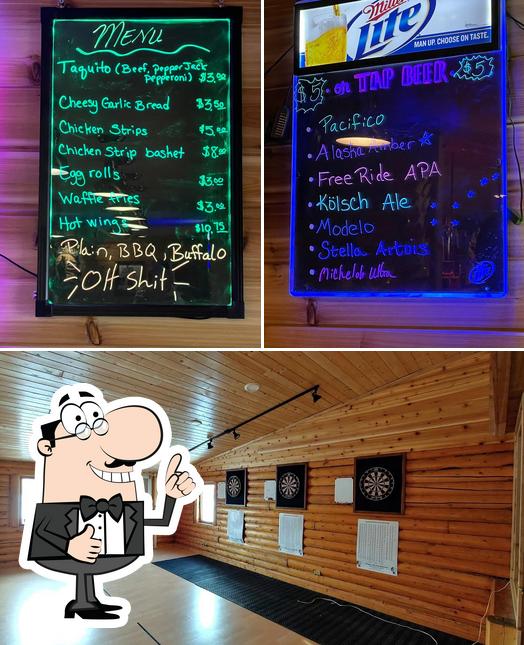 MENU
Taquito (Beef, Pepper Jack
Pepperoni) $3.00
Cheesy Garlic Bread $3.50
Chicken Strips $5.00
Chicken Strip basket $8.00
Egg rolls $3.00
Waffle fries $3.00
Hot wings $10.75
Plain, BBQ, Buffalo
Oh Shit
Miller
Lite
MAN UP. CHOOSE ON TASTE.
$5 oh TAP BEER $5
• Pacifico
• Alaska Amber
• Free Ride APA
• Kölsch Ale
• Modelo
• Stella Artois
• Michelob Ultra